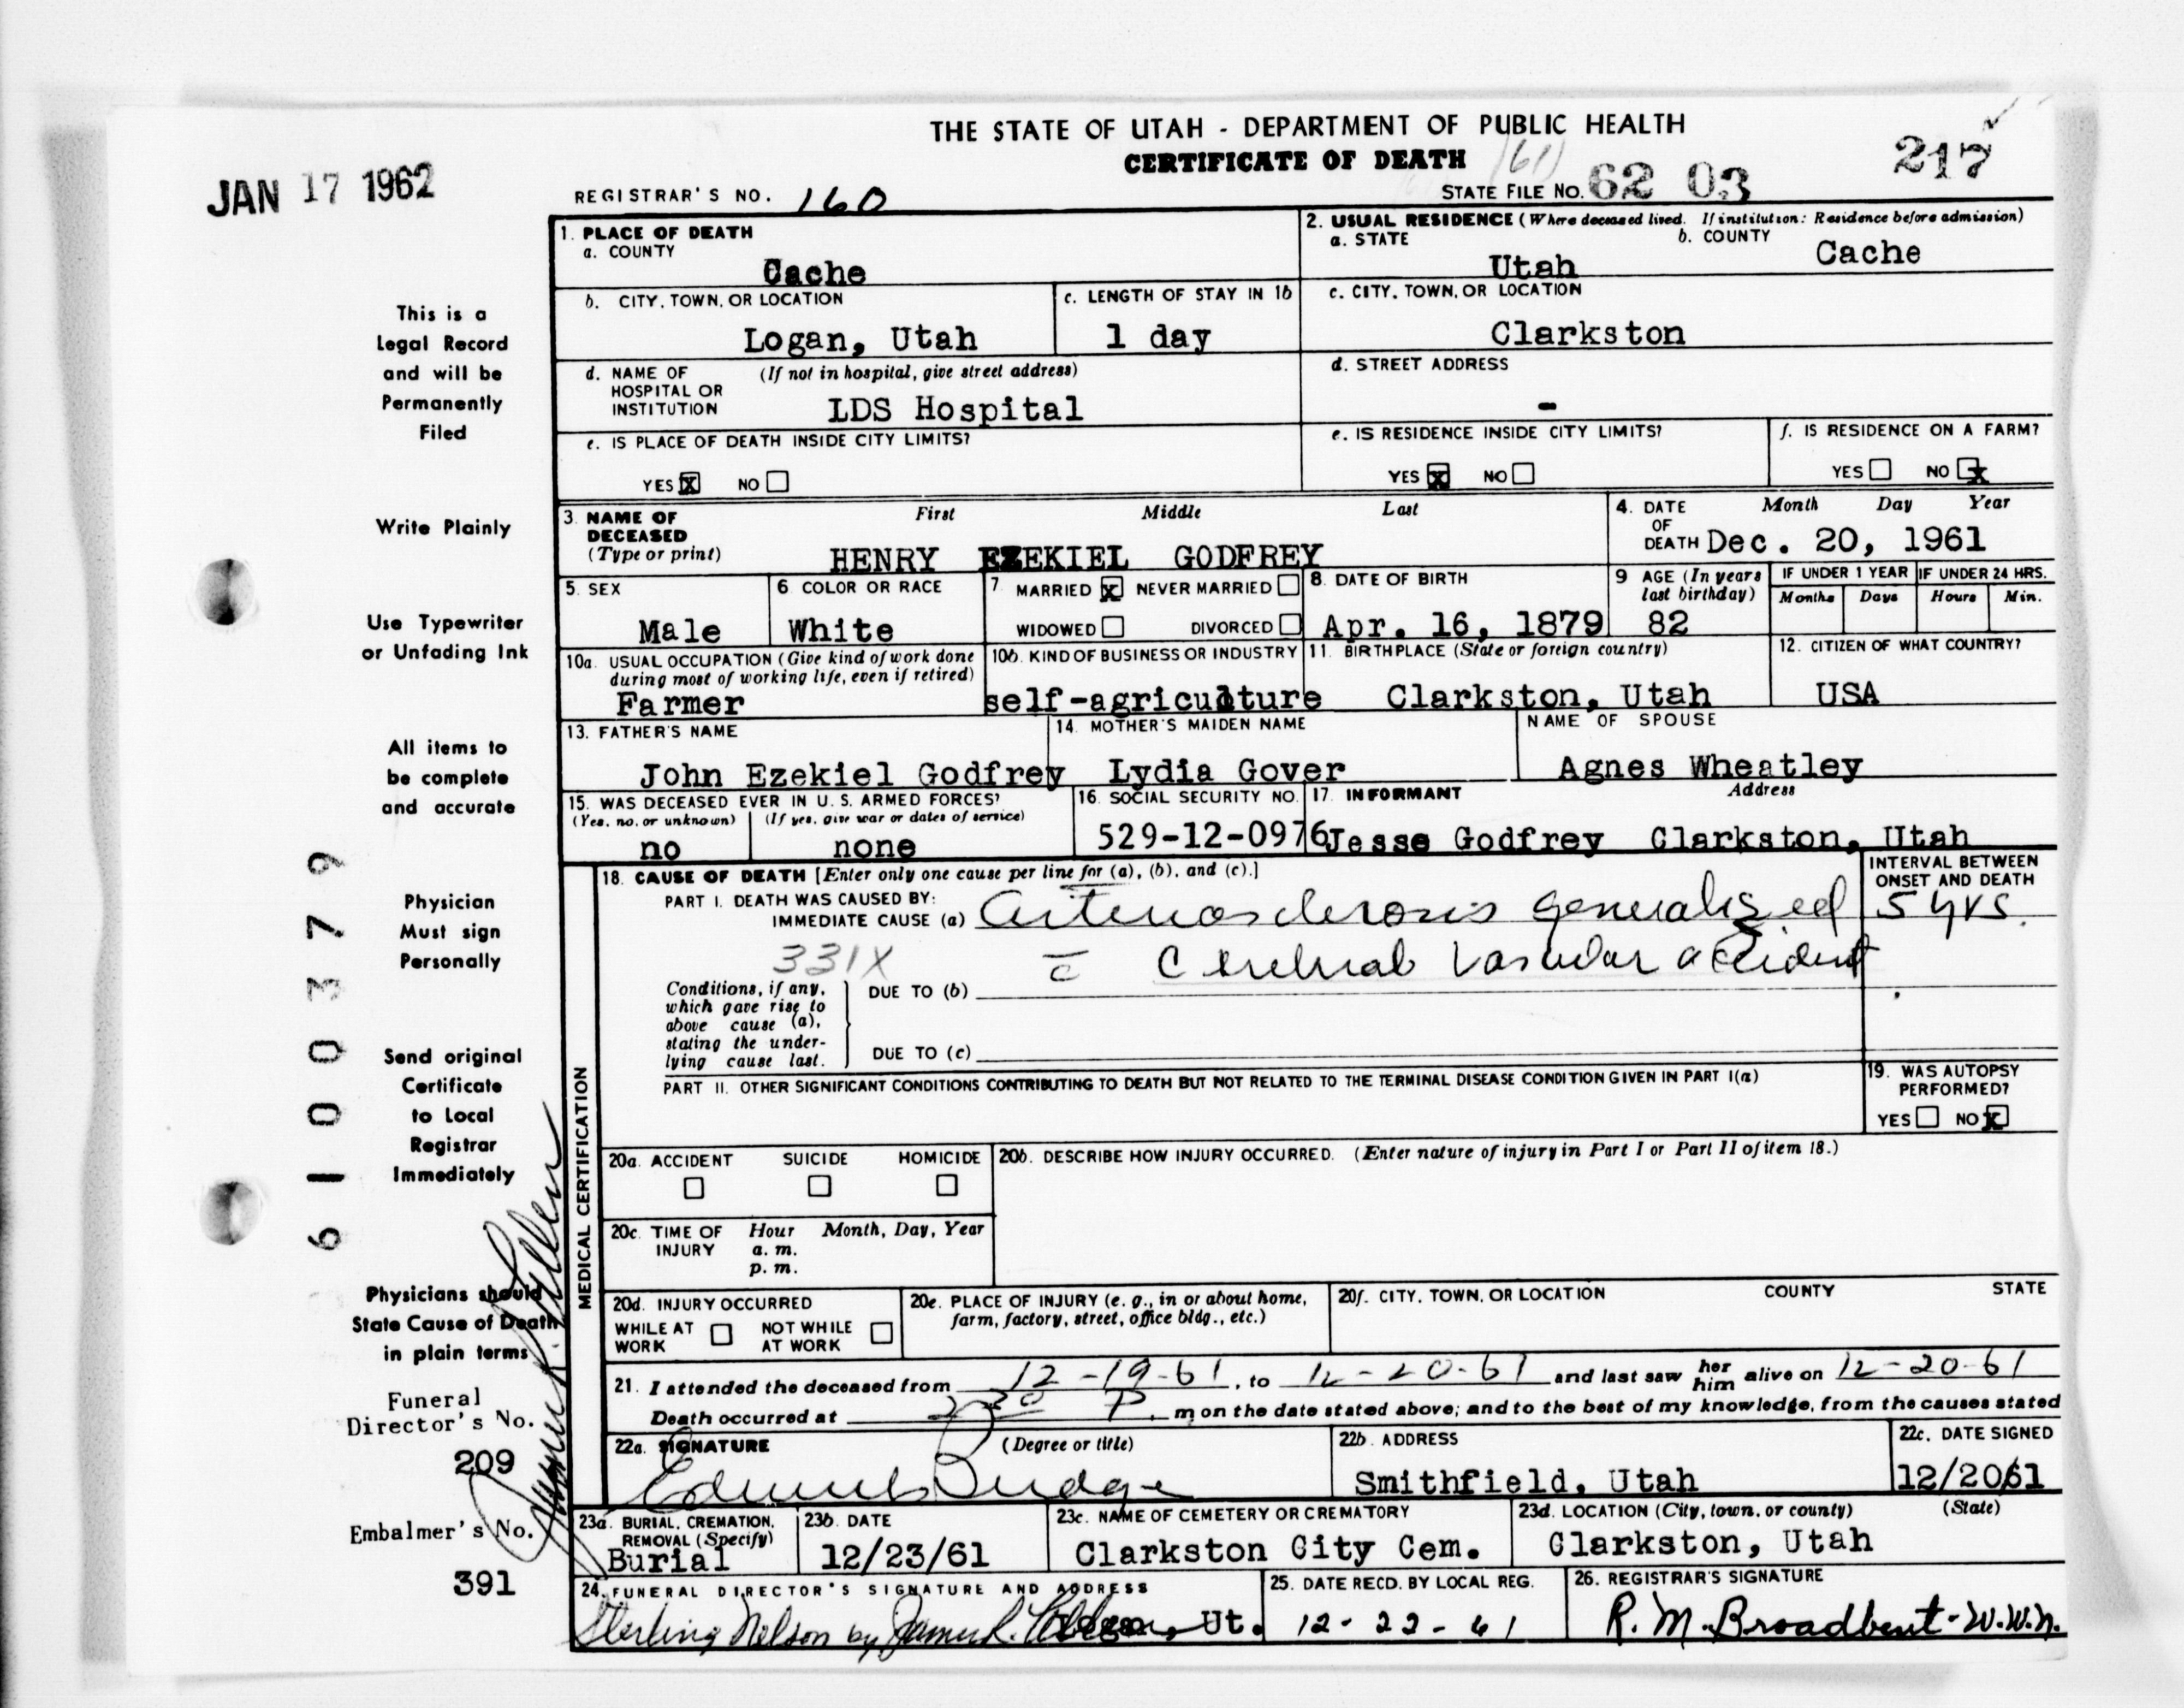 THE STATE OF UTAH - DEPARTMENT OF PUBLIC HEALTH
CERTIFICATE OF DEATH
(61)
217
JAN 17 1962
REGISTRAR'S NO. 160
STATE FILE NO. 62 03
1. PLACE OF DEATH
a. COUNTY
Cache
2. USUAL RESIDENCE (Where deceased lived. If institution: Residence before admission)
a. STATE
Utah
b. COUNTY
Cache
b. CITY, TOWN, OR LOCATION
Logan, Utah
c. LENGTH OF STAY IN 1b
1 day
c. CITY, TOWN, OR LOCATION
Clarkston
d. NAME OF HOSPITAL OR INSTITUTION
(If not in hospital, give street address)
LDS Hospital
d. STREET ADDRESS
-
e. IS PLACE OF DEATH INSIDE CITY LIMITS?
YES X NO
e. IS RESIDENCE INSIDE CITY LIMITS?
YES X NO
f. IS RESIDENCE ON A FARM?
YES NO X
3. NAME OF DECEASED (Type or print)
First Middle Last
HENRY EZEKIEL GODFREY
4. DATE OF DEATH
Month Day Year
Dec. 20, 1961
5. SEX
Male
6. COLOR OR RACE
White
7. MARRIED X NEVER MARRIED
WIDOWED DIVORCED
8. DATE OF BIRTH
Apr. 16, 1879
9 AGE (In years last birthday)
82
IF UNDER 1 YEAR
Months Days
IF UNDER 24 HRS.
Hours Min.
10a. USUAL OCCUPATION (Give kind of work done during most of working life, even if retired)
Farmer
10b. KIND OF BUSINESS OR INDUSTRY
self-agriculture
11. BIRTHPLACE (State or foreign country)
Clarkston, Utah
12. CITIZEN OF WHAT COUNTRY?
USA
13. FATHER'S NAME
John Ezekiel Godfrey
14. MOTHER'S MAIDEN NAME
Lydia Gover
NAME OF SPOUSE
Agnes Wheatley
15. WAS DECEASED EVER IN U. S. ARMED FORCES?
(Yes, no, or unknown) (If yes, give war or dates of service)
no none
16. SOCIAL SECURITY NO.
529-12-0976
17. INFORMANT Address
Jesse Godfrey Clarkston, Utah
MEDICAL CERTIFICATION
18. CAUSE OF DEATH [Enter only one cause per line for (a), (b), and (c).]
PART I. DEATH WAS CAUSED BY:
IMMEDIATE CAUSE (a) Arteriosclerosis generalized
331X
c̄ Cerebral Vascular accident
INTERVAL BETWEEN ONSET AND DEATH
5 yrs.
Conditions, if any, which gave rise to above cause (a), stating the underlying cause last.
DUE TO (b)
DUE TO (c)
PART II. OTHER SIGNIFICANT CONDITIONS CONTRIBUTING TO DEATH BUT NOT RELATED TO THE TERMINAL DISEASE CONDITION GIVEN IN PART I(a)
19. WAS AUTOPSY PERFORMED?
YES NO X
20a. ACCIDENT SUICIDE HOMICIDE
20b. DESCRIBE HOW INJURY OCCURRED. (Enter nature of injury in Part I or Part II of item 18.)
20c. TIME OF INJURY Hour Month, Day, Year
a. m.
p. m.
20d. INJURY OCCURRED
WHILE AT WORK NOT WHILE AT WORK
20e. PLACE OF INJURY (e. g., in or about home, farm, factory, street, office bldg., etc.)
20f. CITY, TOWN, OR LOCATION COUNTY STATE
21. I attended the deceased from 12-19-61, to 12-20-61 and last saw her him alive on 12-20-61
Death occurred at 2 30 P. m on the date stated above; and to the best of my knowledge, from the causes stated
22a. SIGNATURE (Degree or title)
Budge
22b. ADDRESS
Smithfield, Utah
22c. DATE SIGNED
12/20/61
23a. BURIAL, CREMATION, REMOVAL (Specify)
Burial
23b. DATE
12/23/61
23c. NAME OF CEMETERY OR CREMATORY
Clarkston City Cem.
23d. LOCATION (City, town, or county) (State)
Clarkston, Utah
24. FUNERAL DIRECTOR'S SIGNATURE AND ADDRESS
Sterling Nelson by James R. Logan, Ut.
25. DATE RECD. BY LOCAL REG.
12-22-61
26. REGISTRAR'S SIGNATURE
R. M. Broadbent-W.W.N.
This is a
Legal Record
and will be
Permanently
Filed
Write Plainly
Use Typewriter
or Unfading Ink
All items to
be complete
and accurate
Physician
Must sign
Personally
Send original
Certificate
to Local
Registrar
Immediately
Physicians should
State Cause of Death
in plain terms
Funeral
Director's No.
209
Embalmer's No.
391
61 00379